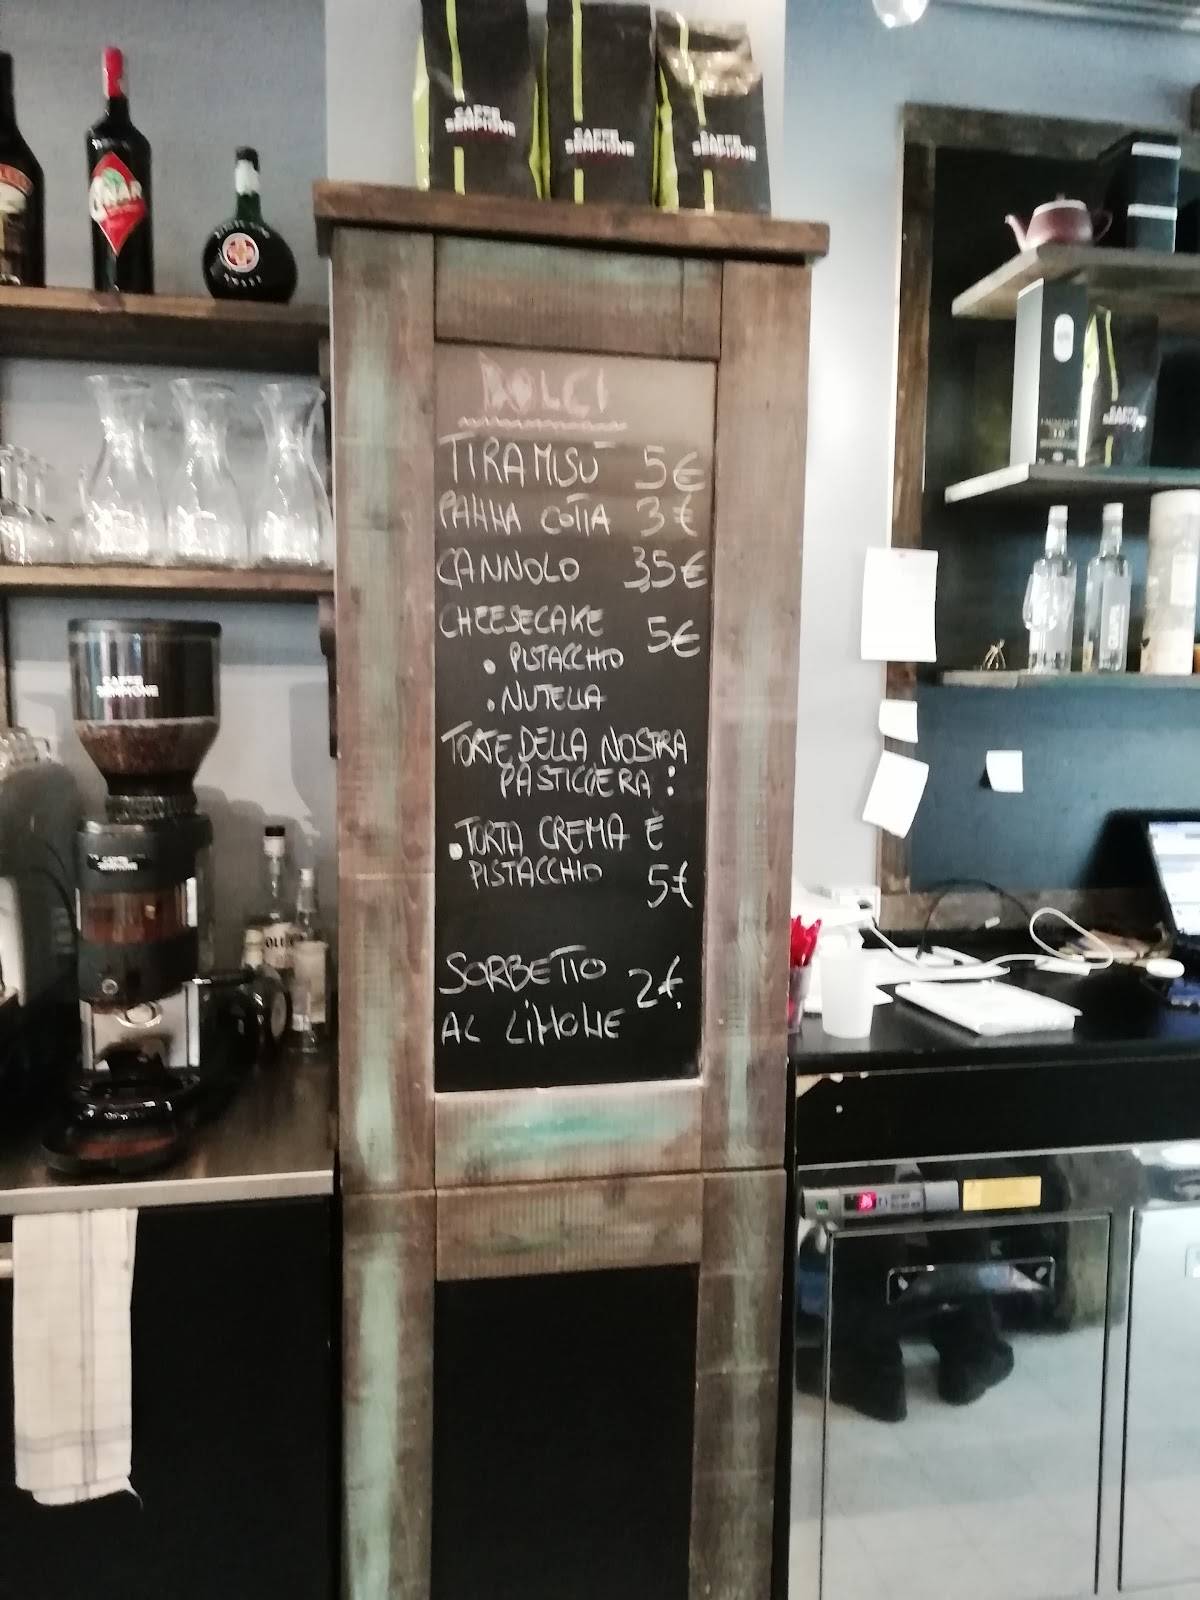 CAFFE
SEMPIONE
CAFFE
SEMPIONE
CAFFE
SEMPIONE
DOLCI
TIRAMISÙ 5€
PANNA COTTA 3€
CANNOLO 3,5€
CHEESECAKE 5€
• PISTACCHIO
• NUTELLA
TORTE DELLA NOSTRA
PASTICCERA :
• TORTA CREMA E
PISTACCHIO 5€
SORBETTO 2€
AL LIMONE
CAFFE
SEMPIONE
CAFFE
SEMPIONE